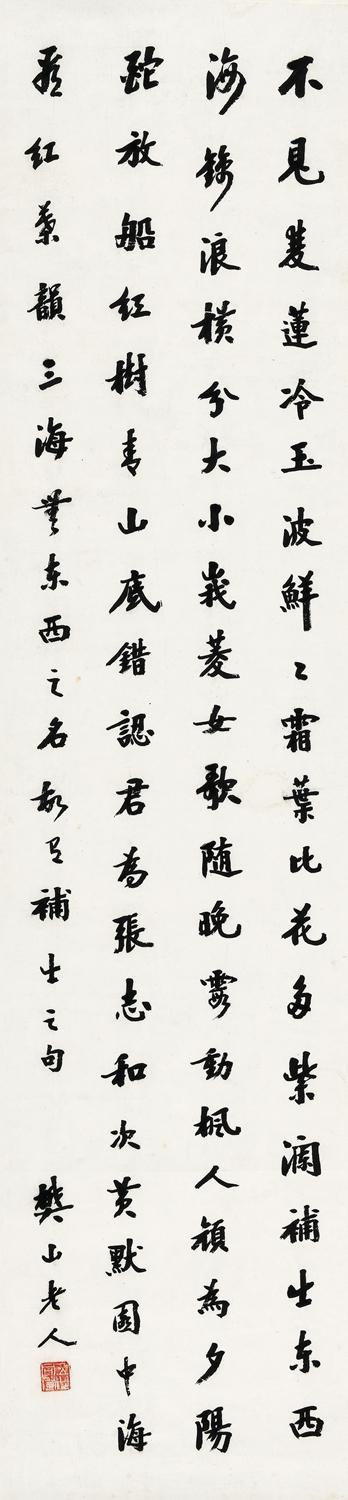 不見菱蓮冷玉波鮮〻霜葉比花多紫瀾補出東西
海錦浪橫分大小峩菱女歌隨晚霞動楓人顏為夕陽
酡放船紅樹青山底錯認君為張志和次黃默園中海
看紅葉韻三海無東西之名故有補出之句 樊山老人